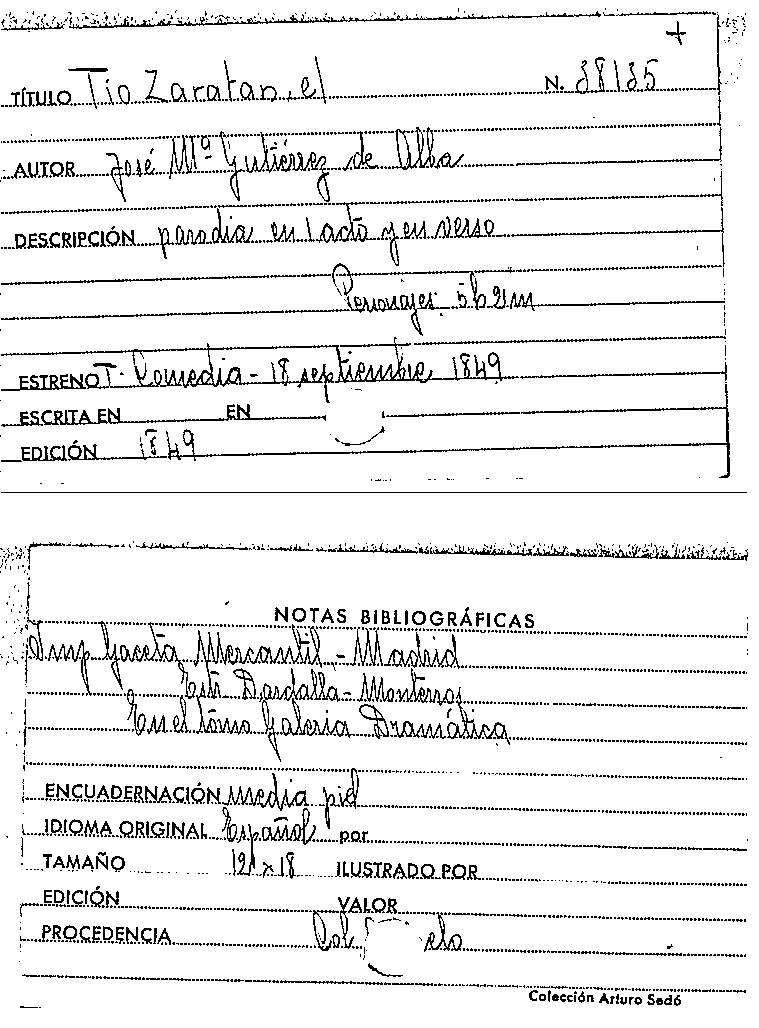 +
TÍTULO Tio Zaratan, el N. 38135
AUTOR José Mª Gutiérrez de Alba
DESCRIPCIÓN parodia en 1 acto y en verso
Personajes: 5h 2m
ESTRENO T. Comedia - 18 septiembre 1849
ESCRITA EN EN
EDICIÓN 1849
NOTAS BIBLIOGRÁFICAS
Imp Gaceta Mercantil - Madrid
Estr Dardalla - Monterros
En el tomo Galeria Dramática
ENCUADERNACIÓN media piel
IDIOMA ORIGINAL Español por
TAMAÑO 12 x 18 ILUSTRADO POR
EDICIÓN VALOR
PROCEDENCIA Col
Colección Arturo Sedó